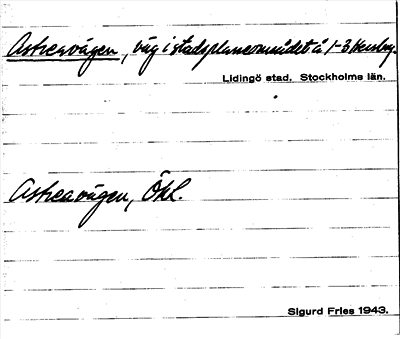 Astreavägen, väg i stadsplaneområdet å 1-3 Hersby.
Lidingö stad. Stockholms län.
Astreavägen, Ökl.
Sigurd Fries 1943.